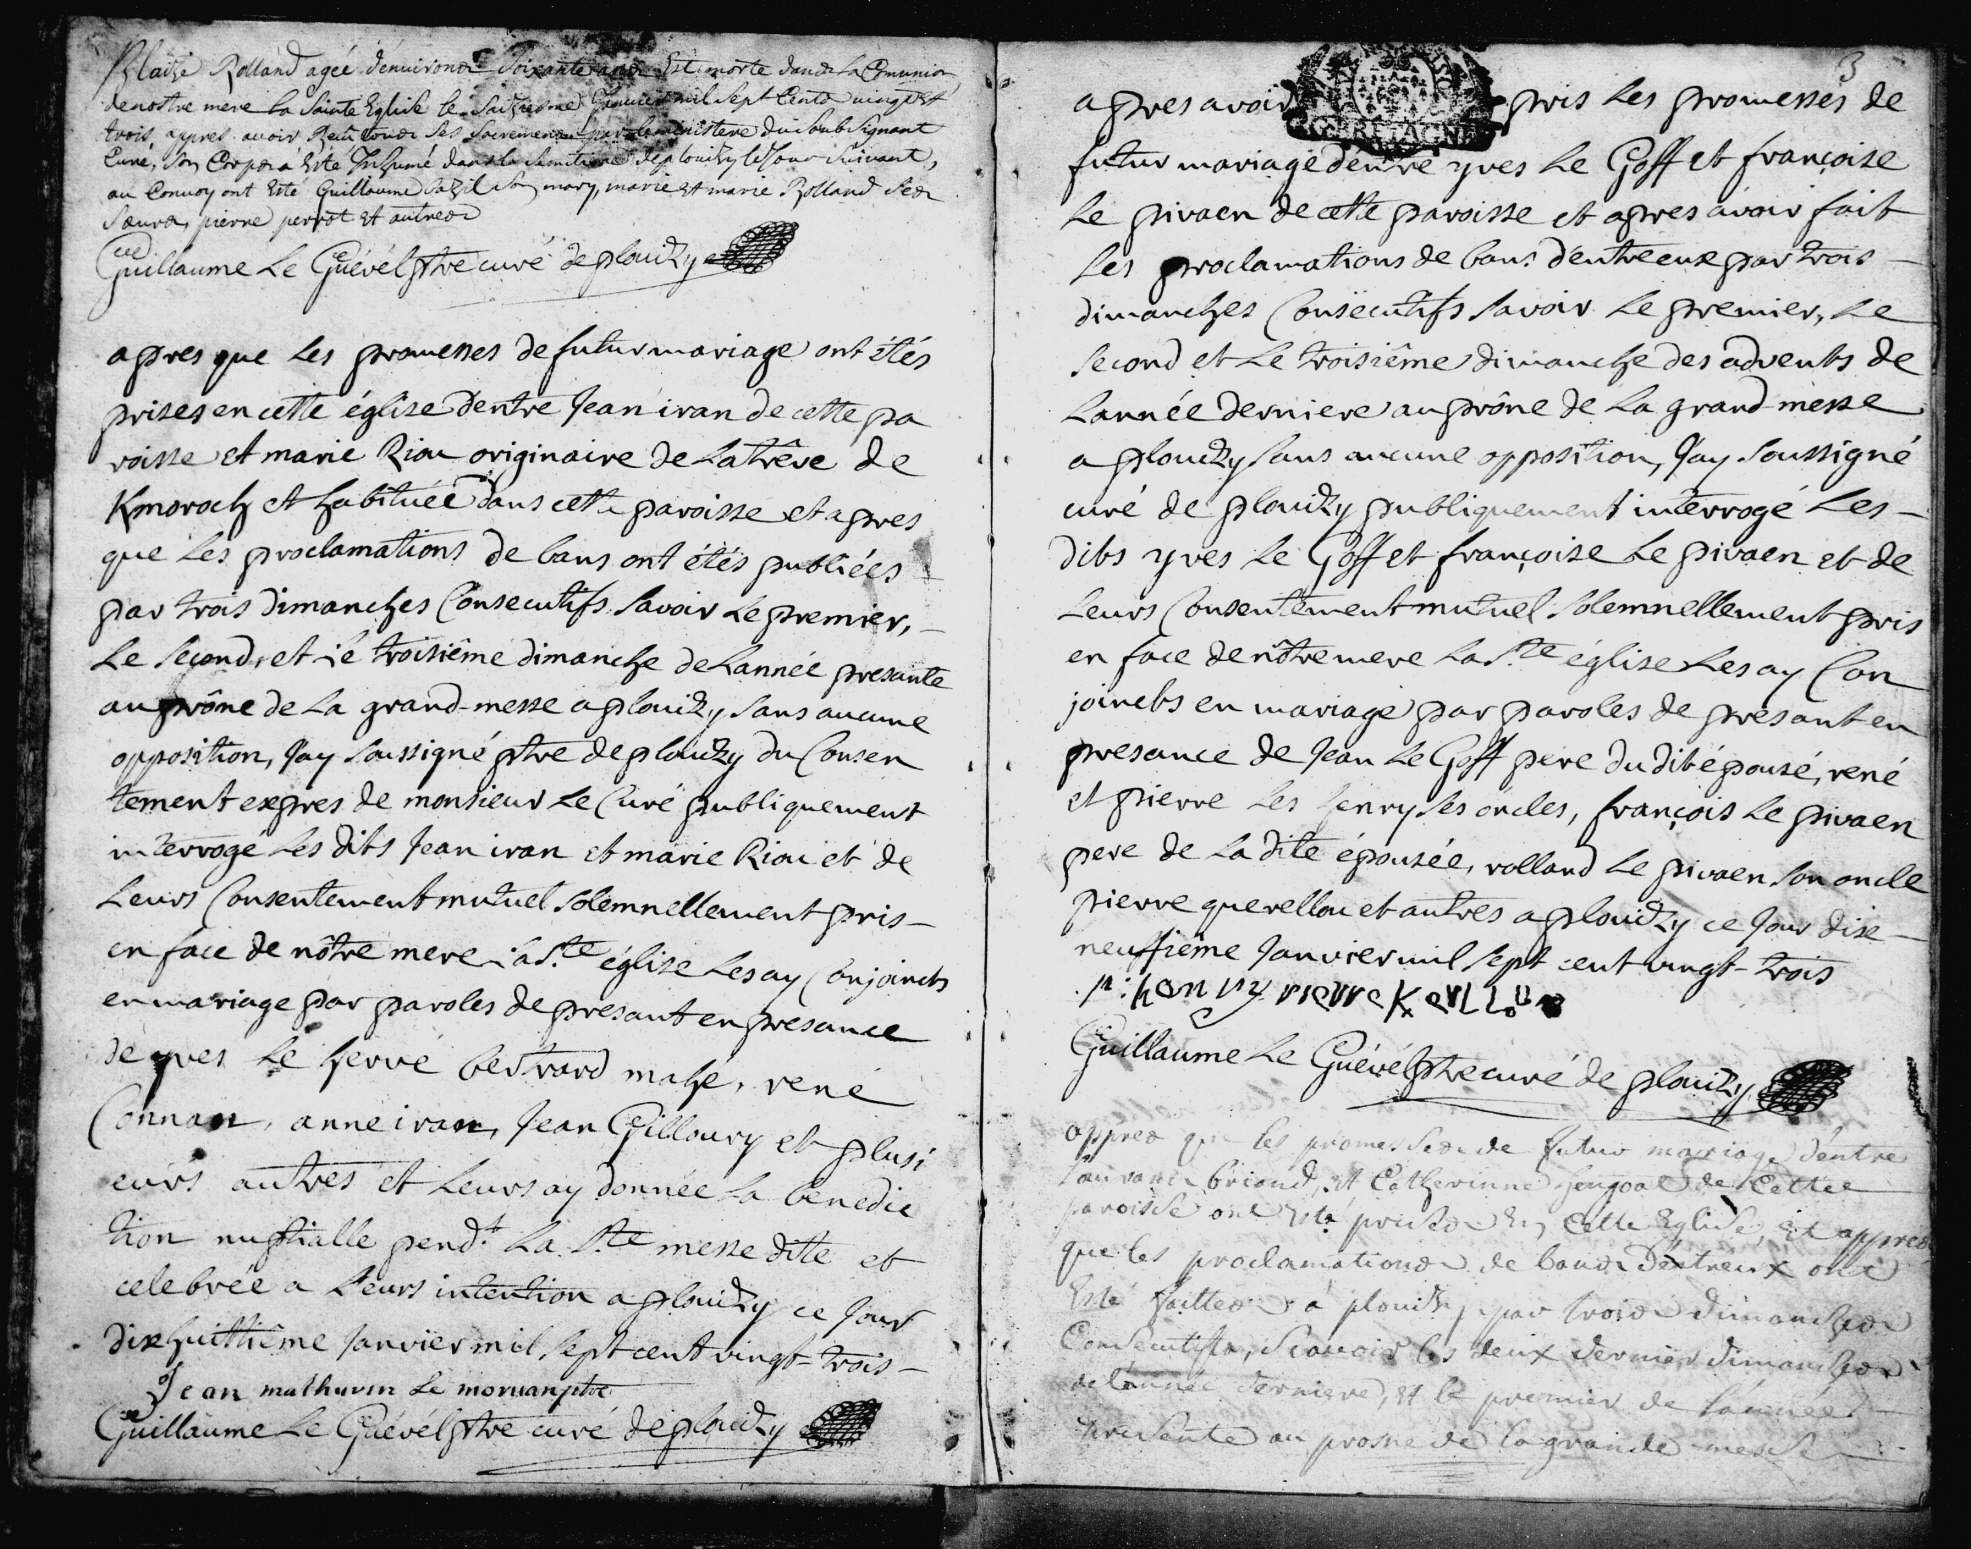 Blaize Rolland agée d'environ soixante ans est morte dans la Comunion
de nostre mere la Sainte Eglise le Saizieme Janvier mil Sept Cents vingt et
trois, appres avoir Receu tous Ses Sacremens par le ministere du Soub Signant
Curé, Son Corps a Esté Inhumé dans la Semitiere de plouizy le Jour Suivant,
au Convoy ont Esté Guillaume Salzil Son mary, marie et marie Rolland Ses
Sœurs, pierre perrot et autres
Guillaume Le Guével ptre curé de plouizy
apres que les promesses de futur mariage ont étés
prises en cette église dentre Jean ivan de cette pa
roisse et marie Riou originaire de la trêve de
Kmoroch et habituée dans cette paroisse et apres
que les proclamations de bans ont étés publiées
par trois dimanches Consecutifs Savoir le premier,
le Second, et le troisiême dimanche de Lannée presante
au prône de la grand-messe a plouizy sans aucune
opposition, Jay Soussigné ptre de plouizy du Consen
tement expres de monsieur le Curé publiquement
interrogé les dits Jean ivan et marie Riou et de
Leurs Consentement mutuel Solemnellement pris
en face de nôtre mere la Ste église les ay Conjoincts
en mariage par paroles de presant en presance
de yves le hervé bertrard mahe, rené
Connan, anne ivan, Jean Gilloury et plusi
eurs autres et leurs ay donnée la benedic
tion nuptialle pendt. la Ste messe dite et
celebrée a leurs intention a plouizy ce Jour
dixhuittiême Janvier mil Sept cent vingt-trois
Jean mathurin Le morvan ptre
Guillaume Le Guével ptre curé de plouizy
3
apres avoir pris les promesses de
BRETAGNE
futur mariage dentre yves le Goff et françoise
le pivaen de cette paroisse et apres avoir fait
les proclamations de bans d'entre eux par trois
dimanches Consecutifs Savoir le premier, le
Second et le troisiême dimanche des advents de
Lannée derniere au prône de la grand-messe
a plouizy Sans aucune opposition, Jay Soussigné
curé de plouizy publiquement interrogé les
dits yves le Goff et françoise le pivaen et de
Leurs Consentement mutuel Solemnellement pris
en face de nôtre mere la Ste église les ay Con
joincts en mariage par paroles de presant en
presance de Jean le Goff pere du dit épousé, rené
et pierre les henry ses oncles, françois le pivaen
pere de la dite épousée, rolland le pivaen Son oncle
pierre querellou et autres a plouizy ce Jour dixe
neuffiême Janvier mil Sept cent vingt-trois
p: henry pierre Kerllou
Guillaume Le Guével ptre curé de plouizy
appres que les promesses de futur mariage d'entre
briand, et Catherinne de Cette
paroisse ont Esté prises En Cette Eglise, Et appres
que les proclamations de bans D'entreux ont
Esté faittes a plouizy par trois dimanches
Consecutifs, Scavoir les deux dernier dimanches
de l'année derniere, et le premier de l'année
presente au prosne de la grande messe